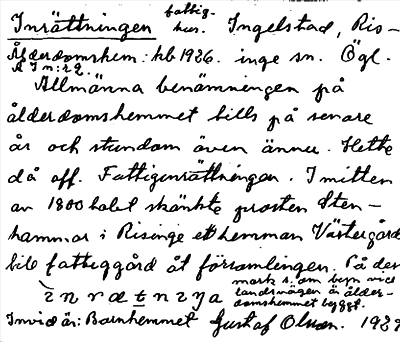 Inrättningen fattig-
hus. Ingelstad, Ris-
Ålderdomshem: hb 1926. inge sn. Ögl.
Allmänna benämningen på
ålderdomshemmet tills på senare
år och stundom även ännu. Hette
då off. Fattiginrättningen. I mitten
av 1800 talet skänkte prosten Sten-
hammar i Risinge ett hemman Västergård
till fattiggård åt församlingen. På den
mark s. om byn vid
landsvägen är ålder-
domshemmet byggt.
Invid är: Barnhemmet Gustaf Olsson. 1929